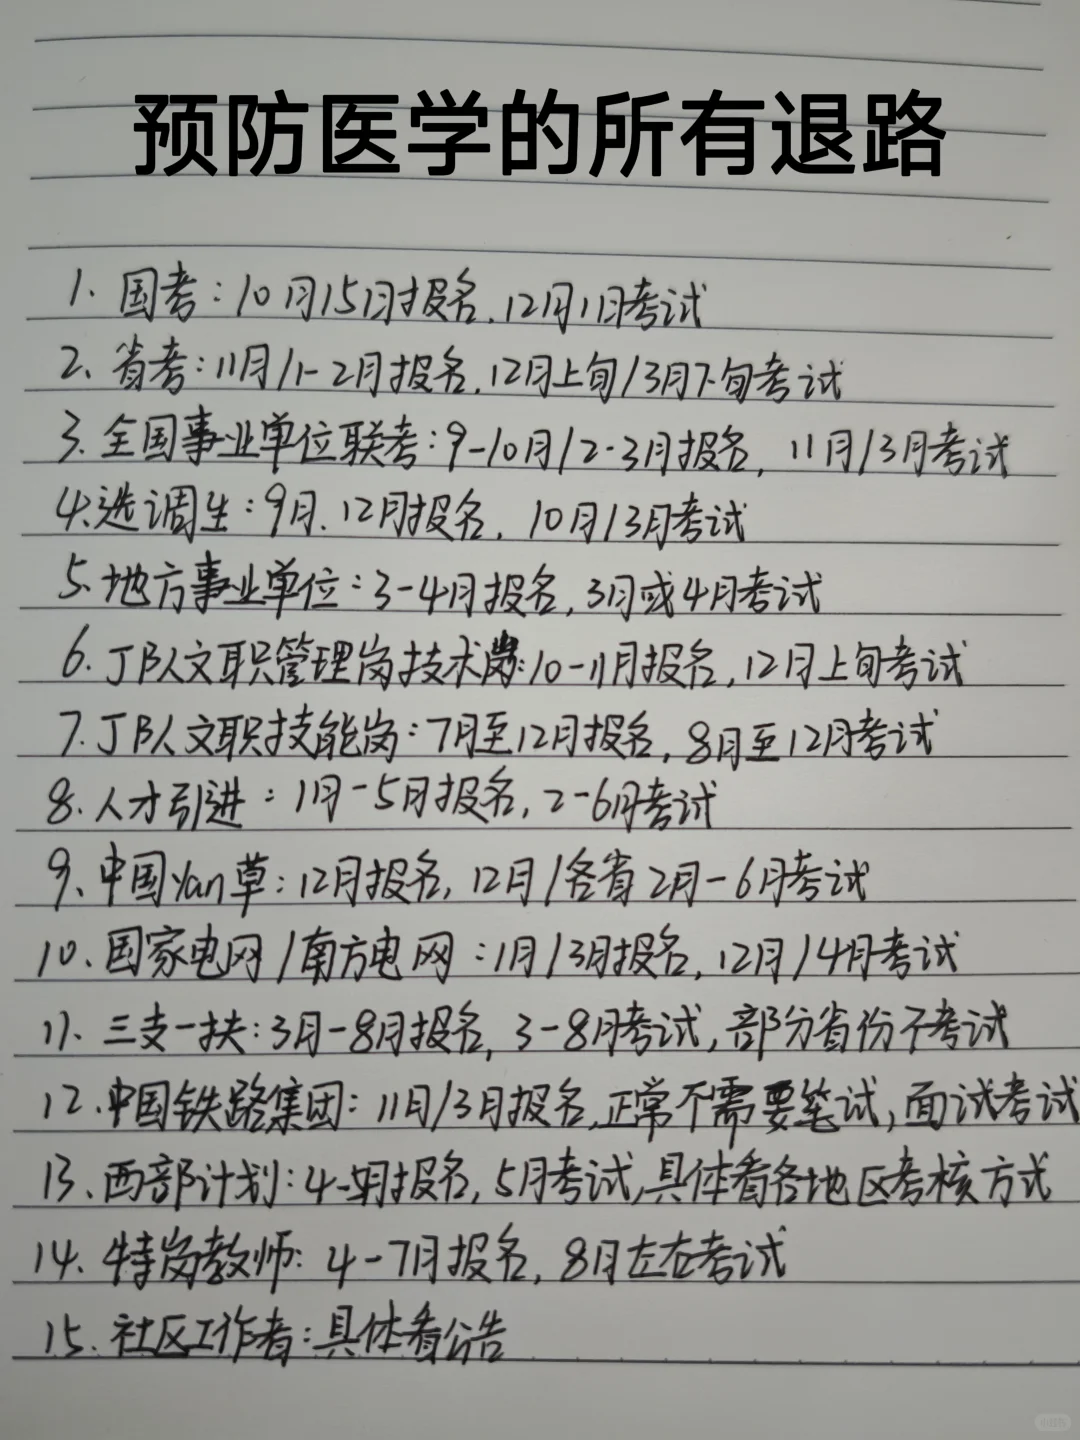 预防医学的所有退路
1. 国考:10月15日报名,12月1日考试
2. 省考:11月/1-2月报名,12月上旬/3月下旬考试
3. 全国事业单位联考:9-10月/2-3月报名,11月/3月考试
4. 选调生:9月、12月报名,10月/3月考试
5. 地方事业单位:3-4月报名,3月或4月考试
6. J队文职管理岗技术岗:10-11月报名,12月上旬考试
7. J队文职技能岗:7月至12月报名,8月至12月考试
8. 人才引进:1月-5月报名,2-6月考试
9. 中国yan草:12月报名,12月/各省2月-6月考试
10. 国家电网/南方电网:1月/3月报名,12月/4月考试
11. 三支一扶:3月-8月报名,3-8月考试,部分省份不考试
12. 中国铁路集团:11月/3月报名,正常不需要笔试,面试考试
13. 西部计划:4-月报名,5月考试,具体看各地区考核方式
14. 特岗教师:4-7月报名,8月左右考试
15. 社区工作者:具体看公告
小红书